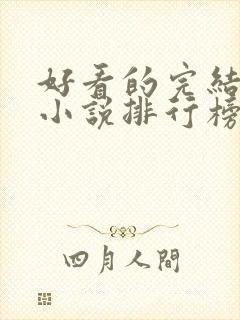 好看的完結
小說排行榜
四月人間